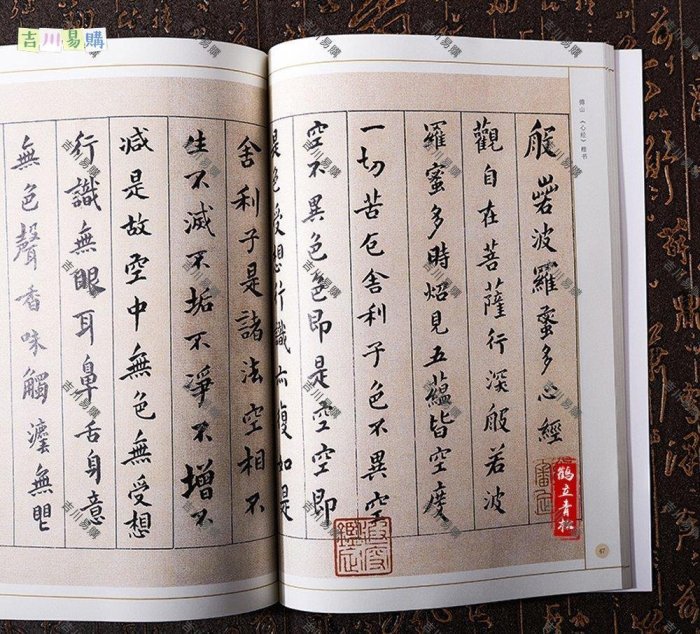 吉川易購
傅山《心经》楷书
般若波羅蜜多心經
觀自在菩薩行深般若波
羅蜜多時炤見五蘊皆空度
一切苦厄舍利子色不異空
空不異色色即是空空即
是色受想行識亦復如是
舍利子是諸法空相不
生不滅不垢不淨不增不
減是故空中無色無受想
行識無眼耳鼻舌身意
無色聲香味觸灋無
鹤立青松
67